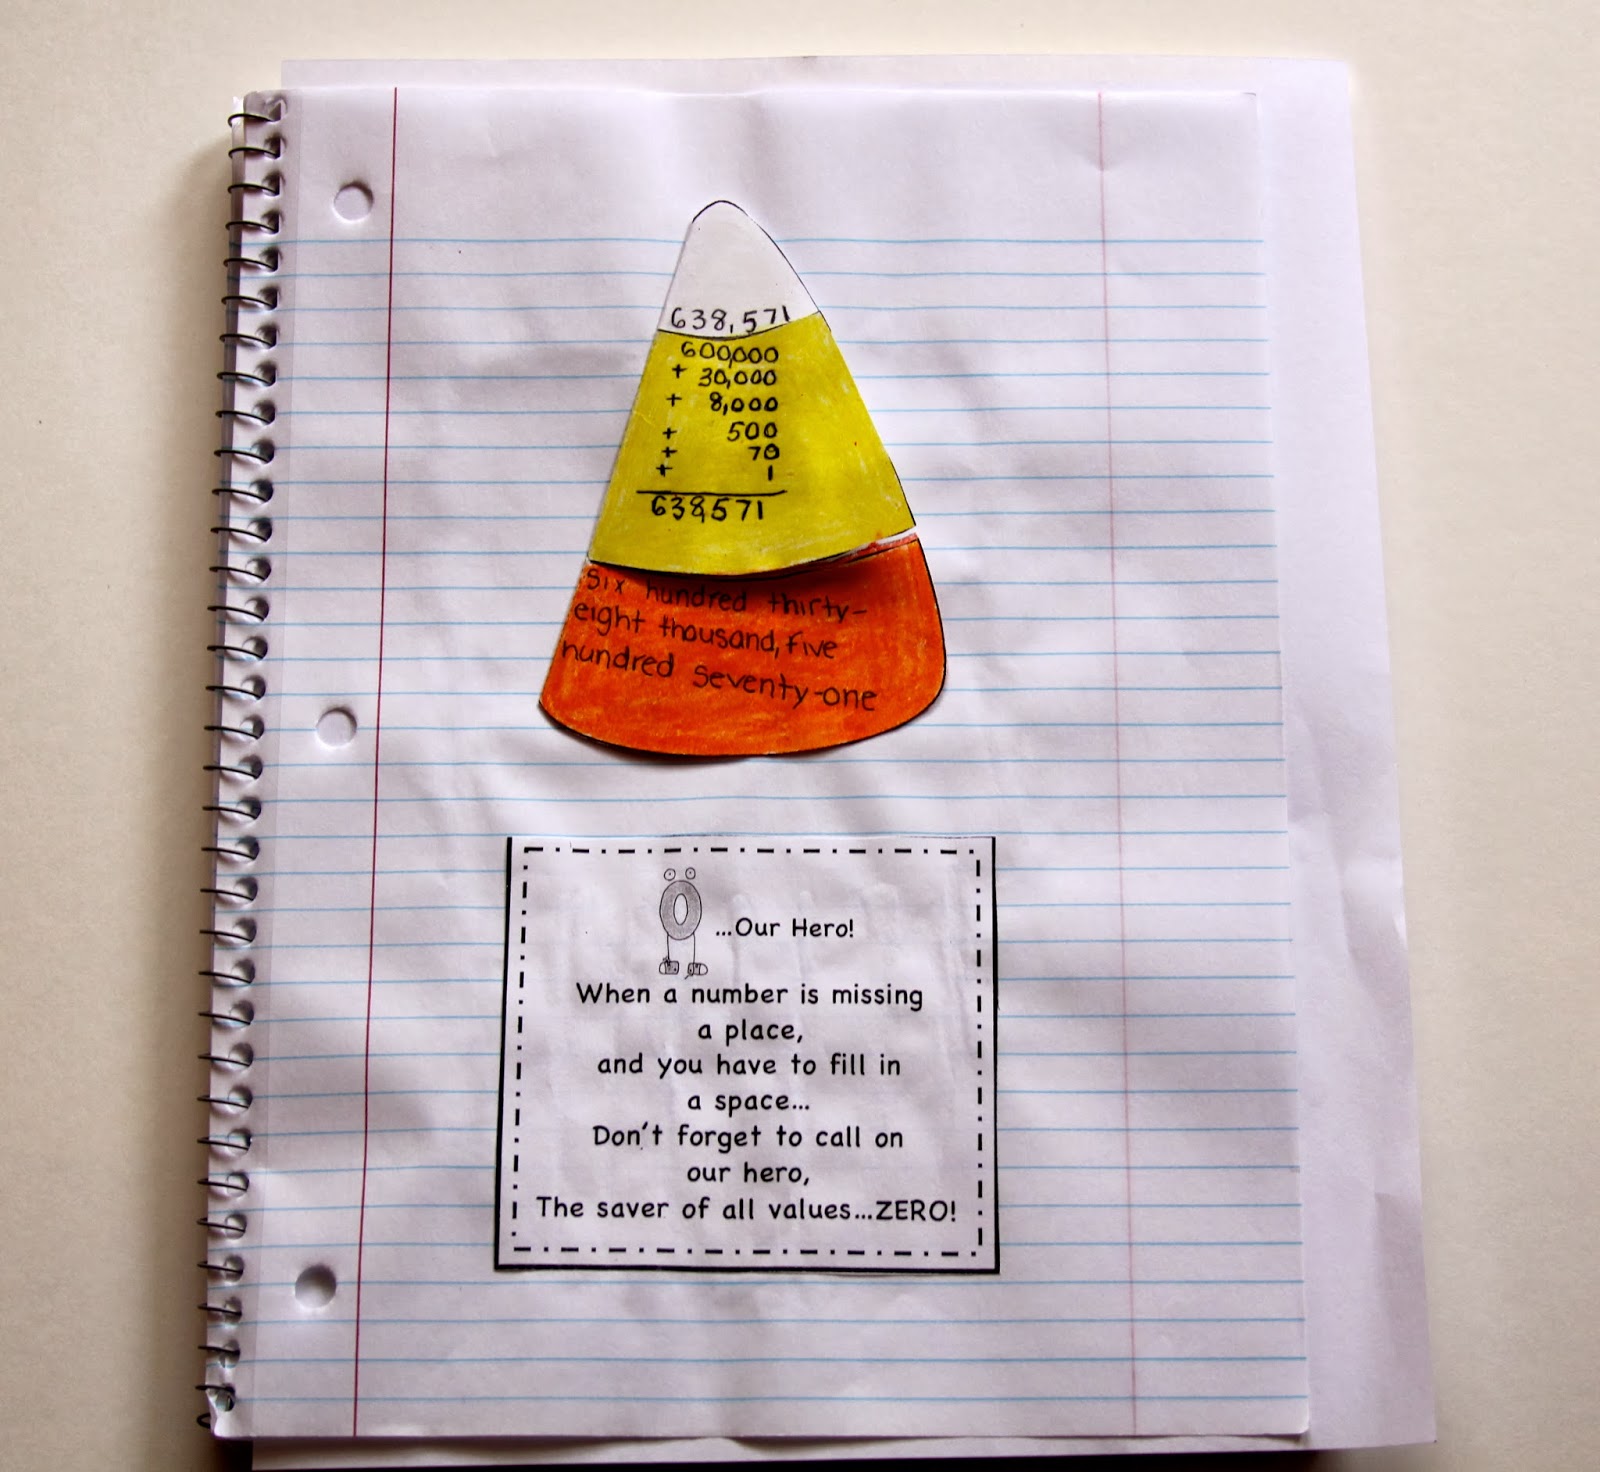 638,571
600,000
+ 30,000
+ 8,000
+ 500
+ 70
+ 1
638,571
Six hundred thirty-
eight thousand, five
hundred seventy-one
0 ...Our Hero!
When a number is missing
a place,
and you have to fill in
a space...
Don't forget to call on
our hero,
The saver of all values...ZERO!